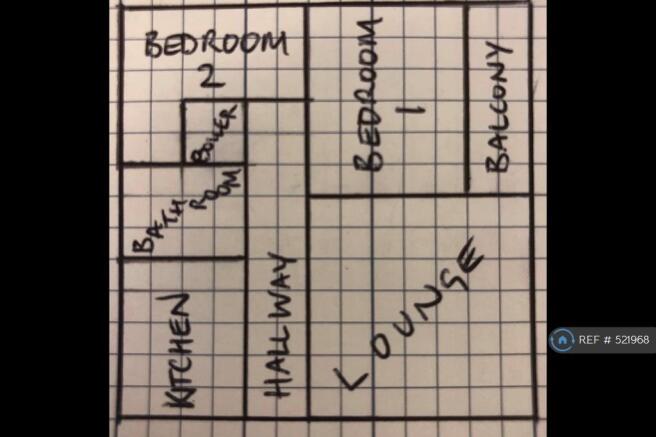 BEDROOM
2
BOILER
BATH
ROOM
KITCHEN
HALLWAY
BEDROOM
1
BALCONY
LOUNGE
REF # 521968